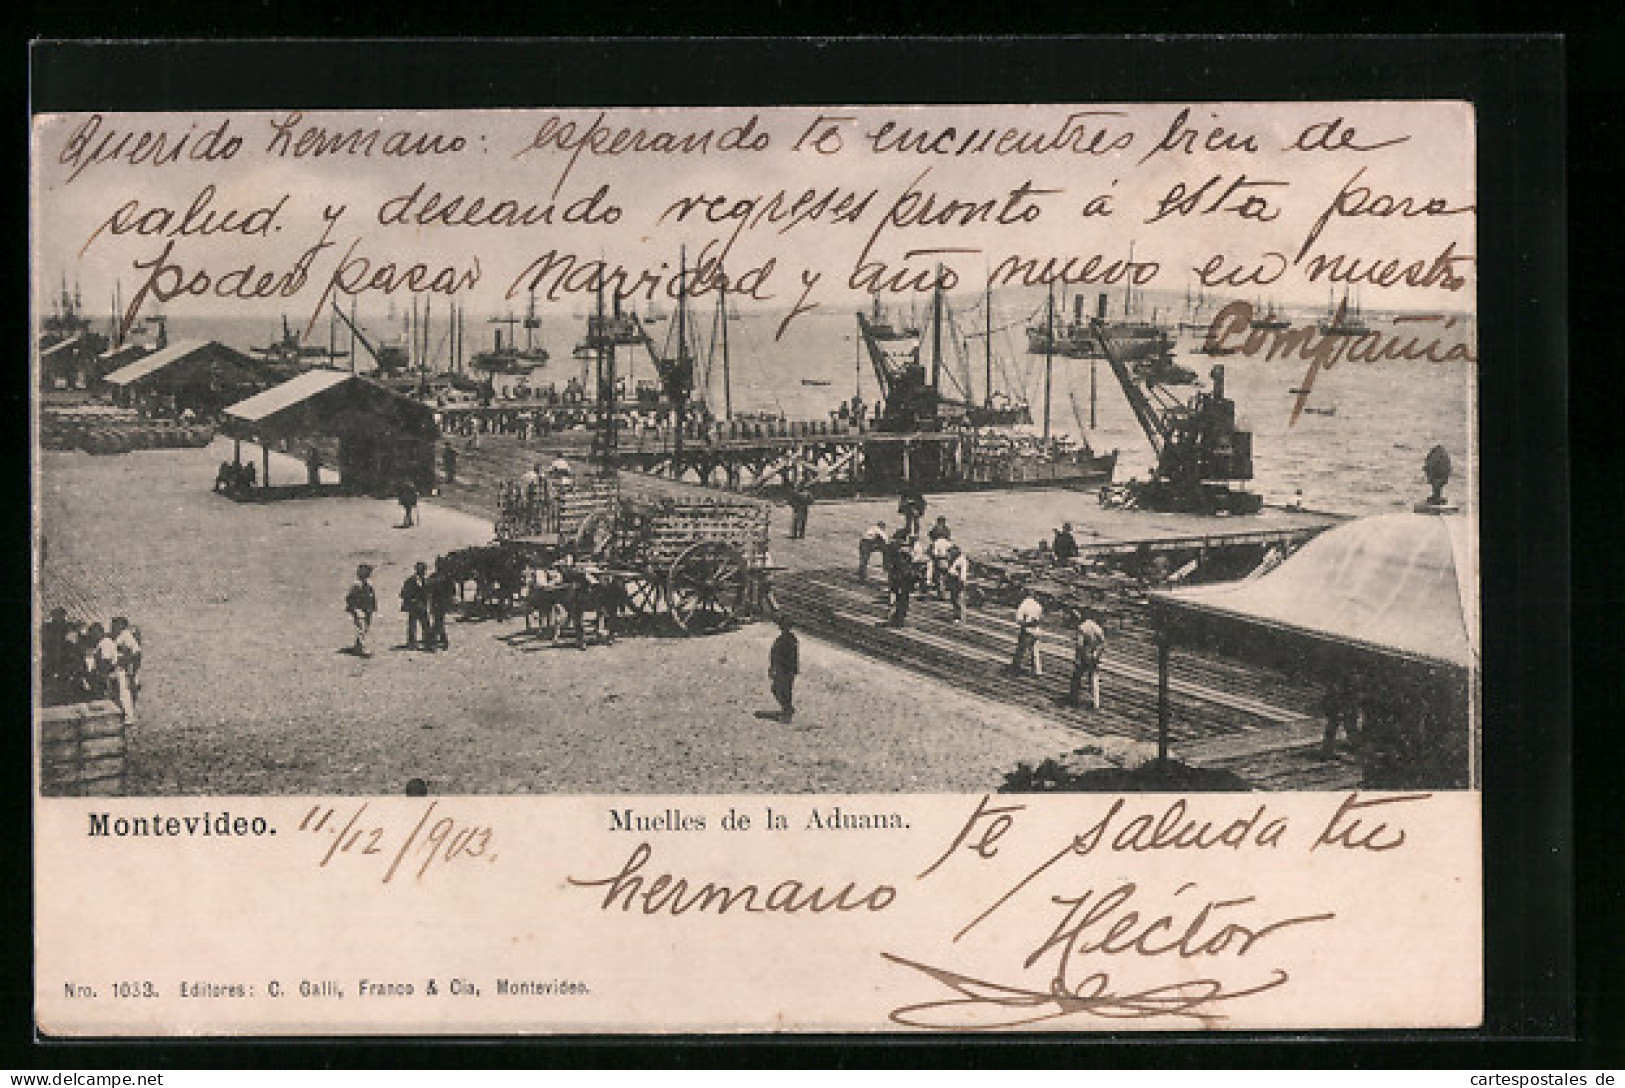 Querido hermano: esperando te encuentres bien de
salud. y deseando regreses pronto á esta para
poder pasar Navidad y año nuevo en nuestra
Compañia
Montevideo. 11/12/903.
Muelles de la Aduana.
te saluda tu
hermano
Héctor
Nro. 1033. Editores: C. Galli, Franco & Cia, Montevideo.
cartespostales de